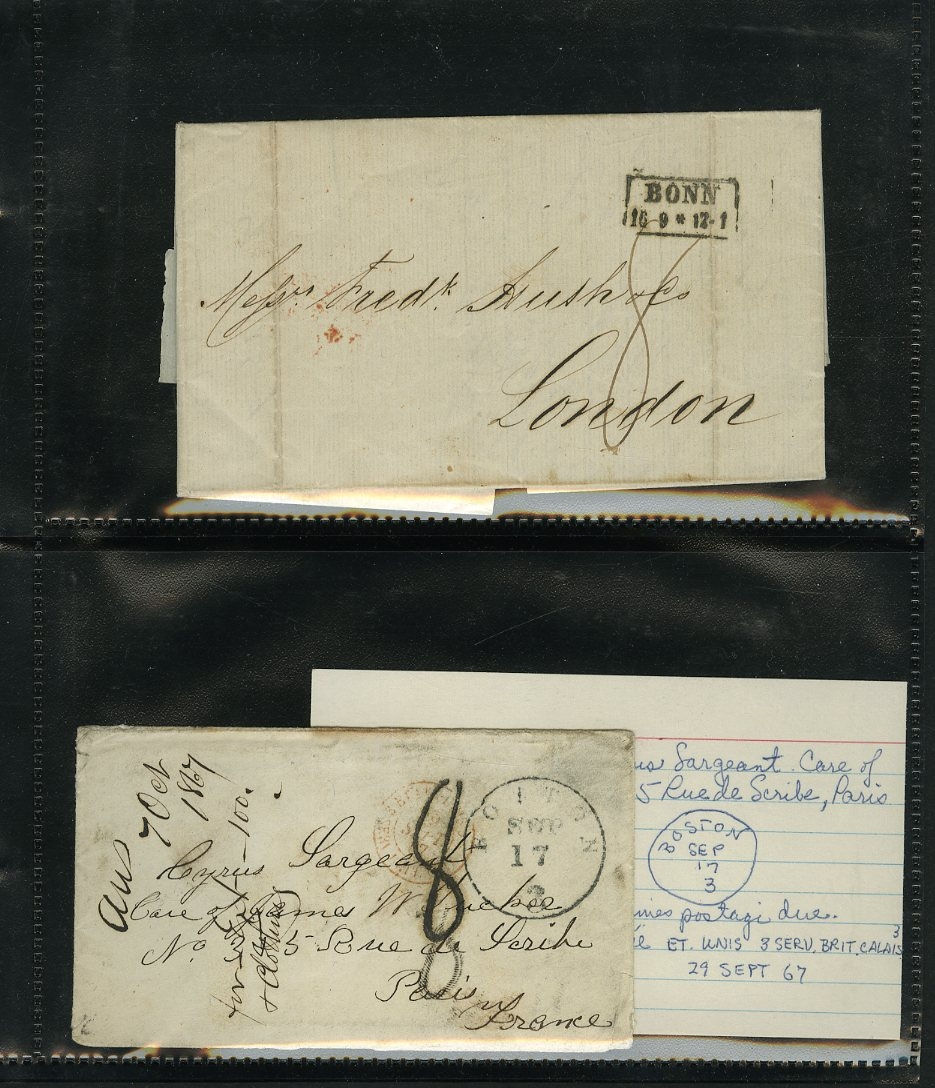 BONN
16 9 * 12-1
Messrs Fredk. Huth & Co
London
8
ans 7 Oct
1867
100.
8
BOSTON
SEP
17
3
Cyrus Sargeant
Care of James W
No 5 Rue de Scribe
Paris
France
us Sargeant. Care of
5 Rue de Scribe, Paris
BOSTON
SEP
17
3
imes postagi due.
é ET. UNIS 3 SERV. BRIT. CALAIS 3
29 SEPT 67